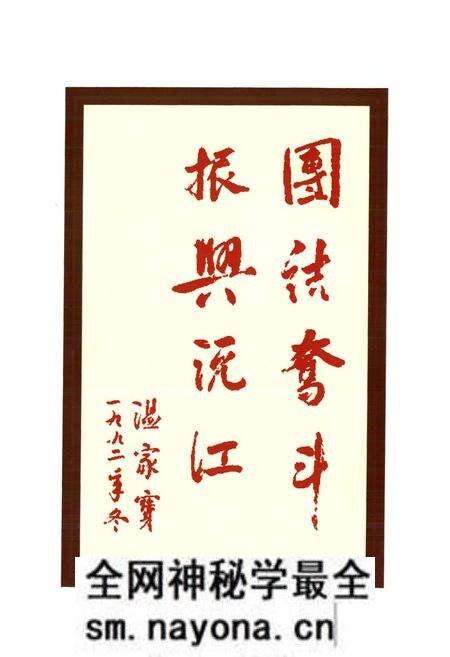 團结奮斗
振興沅江
温家寶
一九九二年冬
全网神秘学最全
sm.nayona.cn